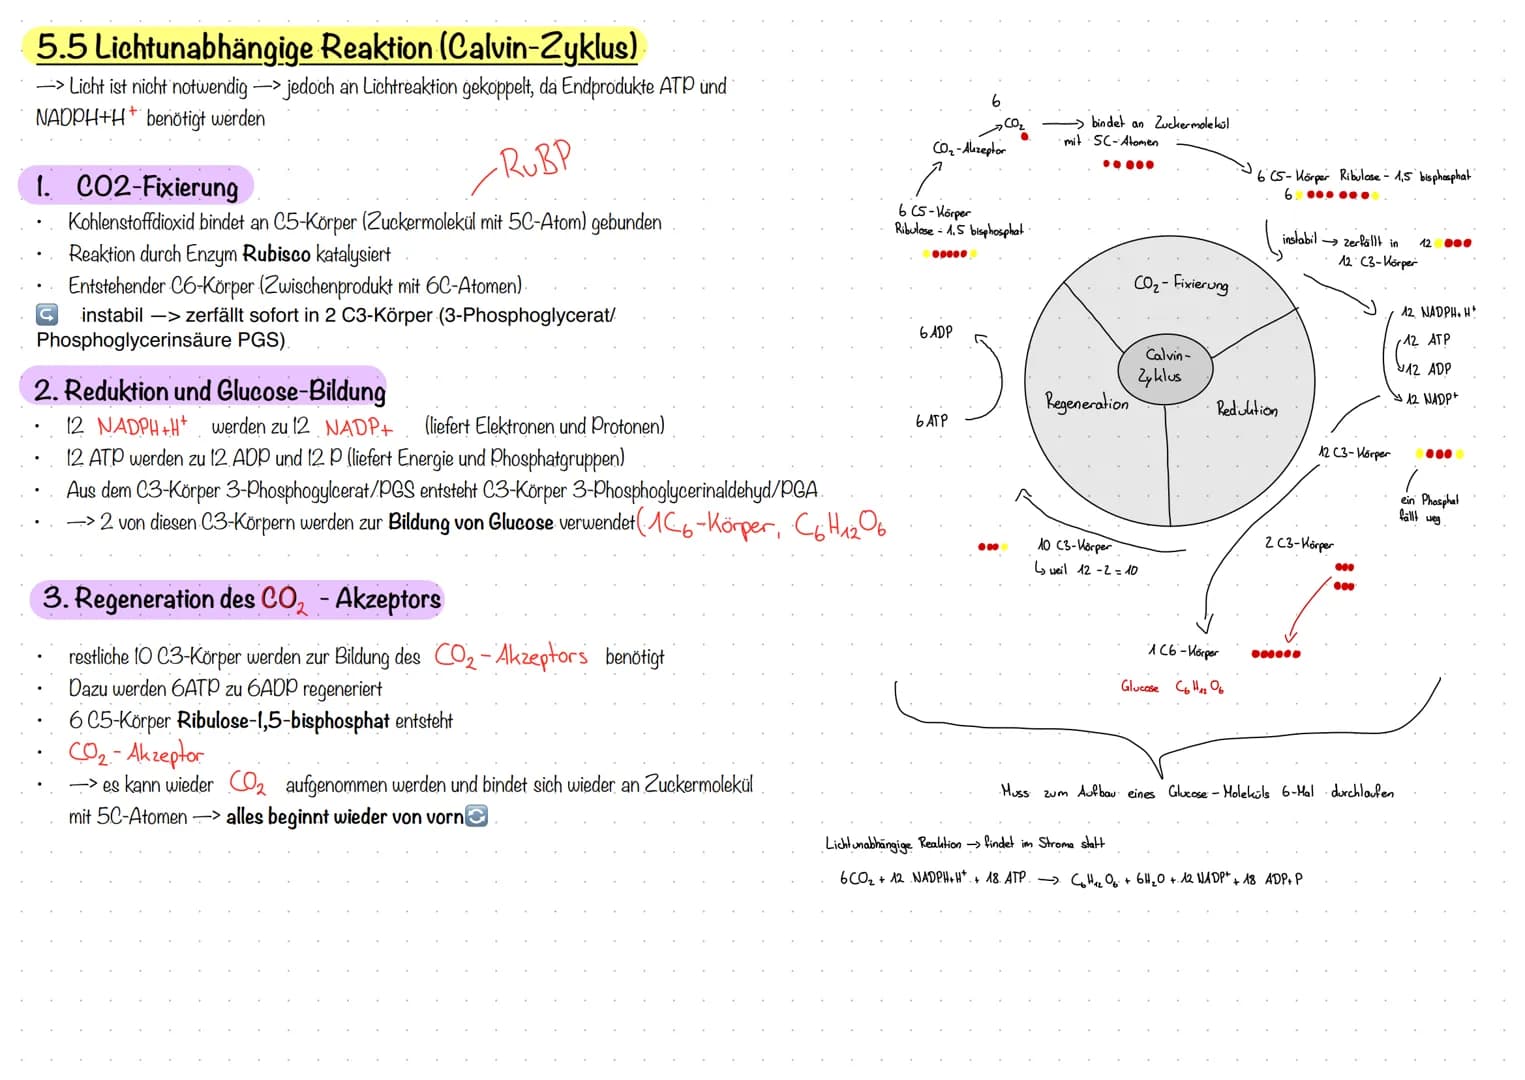 5.5 Lichtunabhängige Reaktion (Calvin-Zyklus)
—> Licht ist nicht notwendig —> jedoch an Lichtreaktion gekoppelt, da Endprodukte ATP und
NADPH+H+ benötigt werden
RuBP
1. CO2-Fixierung
• Kohlenstoffdioxid bindet an C5-Körper (Zuckermolekül mit 5C-Atom) gebunden
• Reaktion durch Enzym Rubisco katalysiert
• Entstehender C6-Körper (Zwischenprodukt mit 6C-Atomen)
instabil —> zerfällt sofort in 2 C3-Körper (3-Phosphoglycerat/
Phosphoglycerinsäure PGS)
2. Reduktion und Glucose-Bildung
• 12 NADPH+H+ werden zu 12 NADP+ (liefert Elektronen und Protonen)
• 12 ATP werden zu 12 ADP und 12 P (liefert Energie und Phosphatgruppen)
• Aus dem C3-Körper 3-Phosphogylcerat/PGS entsteht C3-Körper 3-Phosphoglycerinaldehyd/PGA
• —> 2 von diesen C3-Körpern werden zur Bildung von Glucose verwendet (1C6-Körper, C6H12O6
3. Regeneration des CO2 - Akzeptors
• restliche 10 C3-Körper werden zur Bildung des CO2-Akzeptors benötigt
• Dazu werden 6ATP zu 6ADP regeneriert
• 6 C5-Körper Ribulose-1,5-bisphosphat entsteht
• CO2-Akzeptor
• —> es kann wieder CO2 aufgenommen werden und bindet sich wieder an Zuckermolekül
mit 5C-Atomen —> alles beginnt wieder von vorn
6
CO2 → bindet an Zuckermolekül
mit 5C-Atomen
CO2-Akzeptor
6 C5-Körper
Ribulose-1,5 bisphosphat
6 C5-Körper Ribulose-1,5 bisphosphat
6
instabil → zerfällt in 12
12 C3-Körper
CO2-Fixierung
12 NADPH+H+
12 ATP
12 ADP
12 NADP+
6 ADP
6 ATP
Calvin-
Zyklus
Regeneration
Reduktion
12 C3-Körper
ein Phosphat
fällt weg
10 C3-Körper
↳ weil 12-2=10
2 C3-Körper
1 C6-Körper
Glucose C6H12O6
Muss zum Aufbau eines Glucose-Moleküls 6-Mal durchlaufen
Lichtunabhängige Reaktion → findet im Stroma statt
6CO2 + 12 NADPH+H+ + 18 ATP → C6H12O6 + 6H2O + 12 NADP+ + 18 ADP+P